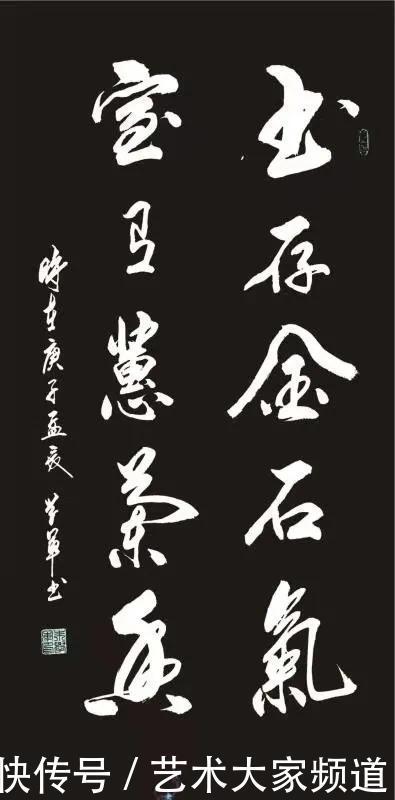 书存金石氣
室有蕙蘭香
時在庚子孟夏 学军书
快传号 / 艺术大家频道